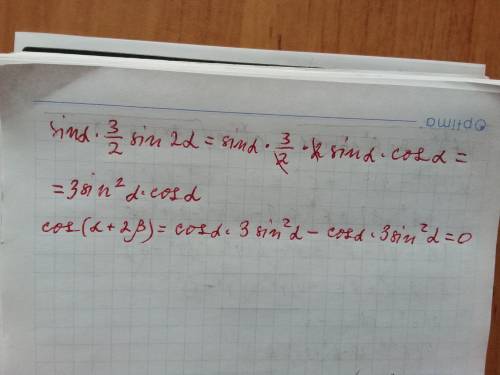 Optima
sinα · 3/2 sin 2α = sinα · 3/2 · 2 sinα · cosα =
= 3sin²α · cosα
cos(α + 2β) = cosα · 3sin²α − cosα · 3sin²α = 0